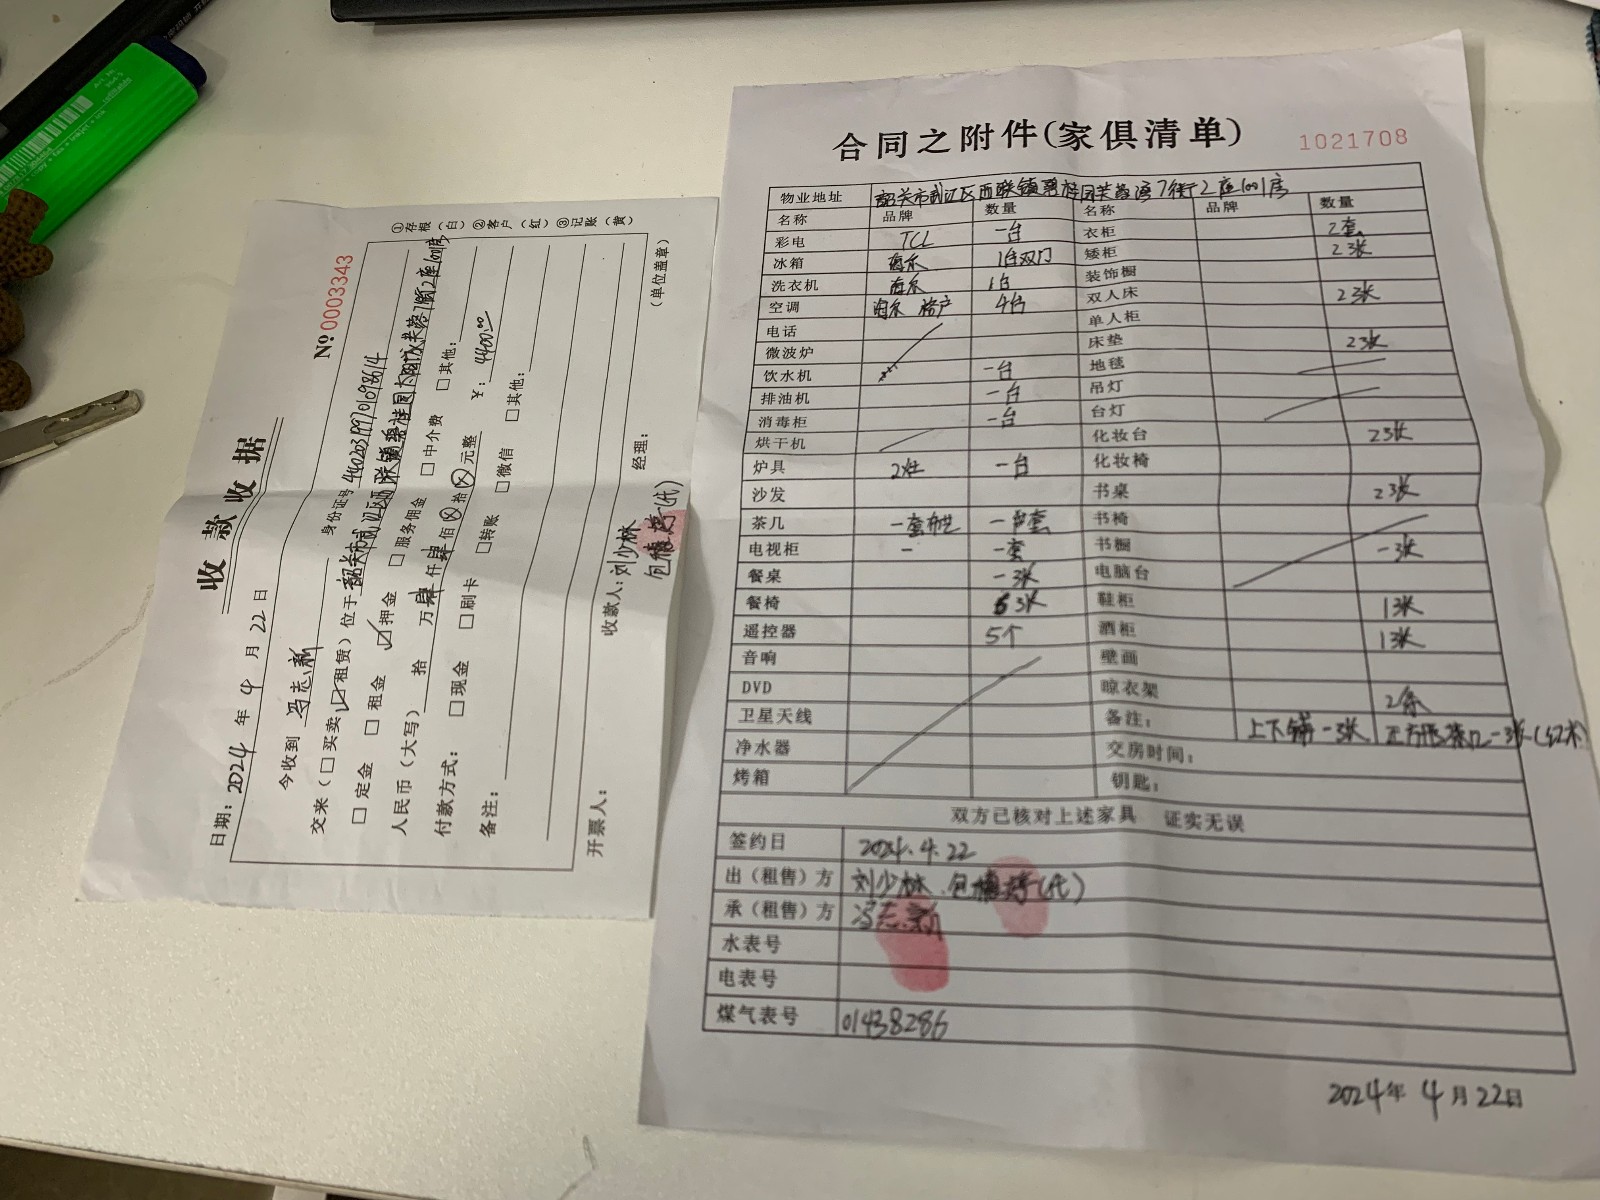 收款收据
№ 0003343
①存根（白）②客户（红）③记账（黄）
日期：2024 年 4 月 22 日
（单位盖章）
今收到 冯志新 身份证号 440203199701098614
交来（□买卖 ☑租赁）位于 韶关市武江区西联镇碧桂园 芙蓉 7街2座1001房
□定金 □租金 ☑押金 □服务佣金 □中介费 □其他：
人民币（大写） 拾 万 肆 仟 肆 佰 ⊗ 拾 ⊗ 元整 ￥：4400.00
付款方式： □现金 □刷卡 □转账 □微信 □其他：
备注：
开票人： 收款人：刘少林 经理：
(代)
合同之附件(家俱清单) 1021708
物业地址 韶关市武江区西联镇碧桂园芙蓉湾7街2座1001房
名称 品牌 数量 名称 品牌 数量
彩电 TCL 一台 衣柜 2套
冰箱 海尔 1台双门 矮柜 2张
洗衣机 海尔 1台 装饰橱
空调 海尔 4台 双人床 2张
电话 单人柜
微波炉 床垫 2张
饮水机 一台 地毯
排油机 一台 吊灯
消毒柜 一台 台灯
烘干机 化妆台 2张
炉具 2灶 一台 化妆椅
沙发 书桌 2张
茶几 一套 书椅
电视柜 一 一套 书橱 一张
餐桌 一张 电脑台
餐椅 张 鞋柜 1张
遥控器 5个 酒柜 1张
音响 壁画
DVD 晾衣架 2条
卫星天线 备注： 上下铺一张
净水器 交房时间：
烤箱 钥匙：
双方已核对上述家具 证实无误
签约日 2024.4.22
出（租售）方 刘少林 (代)
承（租售）方 冯志新
水表号
电表号
煤气表号 01438286
2024年 4 月 22日